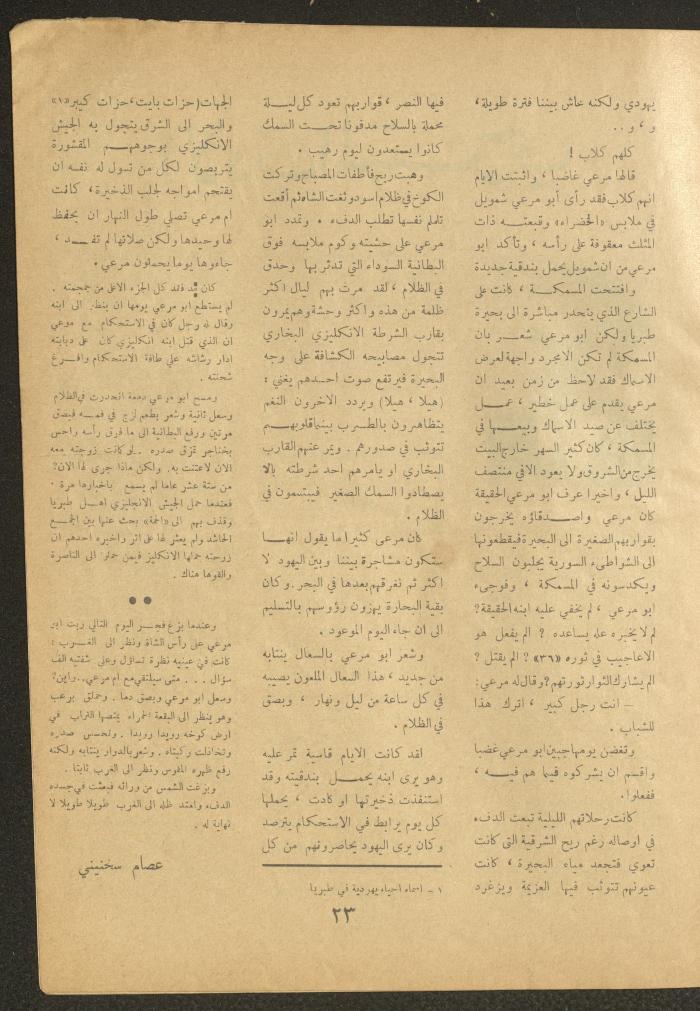 يهودي ولكنه عاش بيننا فترة طويلة ،
و ، و ..
كلهم كلاب !
قالها مرعي غاضبا ، واثبتت الايام
انهم كلاب فقد رأى أبو مرعي شمويل
في ملابس «الخضراء» وقبعته ذات
المثلث معقوفة على رأسه ، وتأكد ابو
مرعي من ان شمويل يحمل بندقية جديدة
وافتتحت المسمكة ، كانت على
الشارع الذي ينحدر مباشرة الى بحيرة
طبريا ولكن ابو مرعي شعر بان
المسمكة لم تكن الا مجرد واجهة لعرض
الاسماك فقد لاحظ من زمن بعيد ان
مرعي يقدم على عمل خطير ، عمل
يختلف عن صيد الاسماك وبيعها في
المسمكة ، كان كثير السهر خارج البيت
يخرج من الشروق ولا يعود الا في منتصف
الليل ، واخيرا عرف ابو مرعي الحقيقة
كان مرعي واصدقاؤه يخرجون
بقواربهم الصغيرة الى البحيرة فيقطعونها
الى الشواطىء السورية يجلبون السلاح
ويكدسونه في المسمكة ، وفوجىء
ابو مرعي ، لم يخفي عليه ابنه الحقيقة؟
لم لا يخبره عله يساعده ؟ الم يفعل هو
الاعاجيب في ثوره «٣٦» ؟ الم يقتل ؟
الم يشارك الثوار ثورتهم؟ وقال له مرعي :
— انت رجل كبير ، اترك هذا
للشباب .
وتغضن يومها جبين ابو مرعي غضبا
واقسم ان يشركوه فيما هم فيه ،
ففعلوا .
كانت رحلاتهم الليلية تبعث الدفء
في اوصاله رغم ريح الشرقية التي كانت
تعوي فتجعد مياه البحيرة ، كانت
عيونهم تتوثب فيها العزيمة ويزغرد
فيها النصر ، قواربهم تعود كل ليلة
محملة بالسلاح مدفونا تحت السمك
كانوا يستعدون ليوم رهيب .
وهبت ريح فأطفات المصباح وتركت
الكوخ في ظلام اسود وثغت الشاه ثم أقعت
تلملم نفسها تطلب الدفء . وتمدد ابو
مرعي على حشيته وكوم ملابسه فوق
البطانية السوداء التي تدثر بها وحدق
في الظلام ، لقد مرت بهم ليال اكثر
ظلمة من هذه واكثر وحشة وهم يمرون
بقارب الشرطة الانكليزي البخاري
تتجول مصابيحه الكشافة على وجه
البحيرة فيرتفع صوت احدهم يغني :
(هيلا ، هيلا) ويردد الاخرون النغم
يتظاهرون بالطرب بينما قلوبهم
تتوثب في صدورهم . ويمر عنهم القارب
البخاري او يامرهم احد شرطته بالا
يصطادوا السمك الصغير فيبتسمون في
الظلام .
كان مرعي كثيرا ما يقول انها
ستكون مشاجرة بيننا وبين اليهود لا
اكثر ثم نغرقهم بعدها في البحر . وكان
بقية البحارة يهزون رؤوسهم بالتسليم
الى ان جاء اليوم الموعود .
وشعر ابو مرعي بالسعال ينتابه
من جديد ، هذا السعال الملعون يصيبه
في كل ساعة من ليل ونهار ، وبصق
في الظلام .
لقد كانت الايام قاسية تمر عليه
وهو يرى ابنه يحمل بندقيته وقد
استنفذت ذخيرتها او كادت ، يحملها
كل يوم يرابط في الاستحكام يترصد
وكان يرى اليهود يحاصرونهم من كل
١ ـ اسماء احياء يهودية في طبريا
الجهات (حزات بايت ، حزات كيبر«١»
والبحر الى الشرق يتجول به الجيش
الانكليزي بوجوههم المقشورة
يتربصون لكل من تسول له نفسه ان
يقتحم امواجه لجلب الذخيرة ، كانت
ام مرعي تصلي طول النهار ان يحفظ
لها وحيدها ولكن صلاتها لم تفد ،
جاءوها يوما يحملون مرعي .
كان قد فقد كل الجزء الاعلى من جمجمته .
لم يستطع ابو مرعي يومها ان ينظر الى ابنه
وقال له رجل كان في الاستحكام مع مرعي
ان الذي قتل ابنه انكليزي كان على دبابته
ادار رشاشه على طاقة الاستحكام وافرغ
شحنته .
ومسح ابو مرعي دمعة انحدرت في الظلام
وسعل ثانية وشعر بطعم لزج في فمه فبصق
مرتين ورفع البطانية الى ما فرق رأسه واحس
بخناجر تمزق صدره .. لو كانت زوجته معه
الان لاعتنت به . ولكن ماذا جرى لها الان؟
من ستة عشر عاما لم يسمع باخبارها مرة .
فعندما حمل الجيش الانجليزي اهل طبريا
وقذف بهم الى «الحمة» بحث عنها بين الجمع
الحاشد ولم يعثر لها على اثر واخبره احدهم ان
زوجته حملها الانكليز فيمن حملوا الى الناصرة
والقوها هناك .
●●
وعندما بزغ فجر اليوم التالي ربت ابو
مرعي على رأس الشاة ونظر الى الغرب :
كانت في عينيه نظرة تساؤل وعلى شفتيه الف
سؤال ... متى سيلتقي مع ام مرعي .. واين؟
وسعل ابو مرعي وبصق دما . وحملق برعب
وهو ينظر الى البقعة الحمراء يمتصها التراب في
ارض كوخه رويدا رويدا . وتحسس صدره
وتخاذلت ركبتاه . وشعر بالدوار ينتابه ولكنه
رفع ظهره المقوس ونظر الى الغرب ثابتا .
وبزغت الشمس من ورائه فبعثت في جسده
الدفء وامتد ظله الى الغرب طويلا طويلا لا
نهاية له .
عصام سخنيني
٢٣